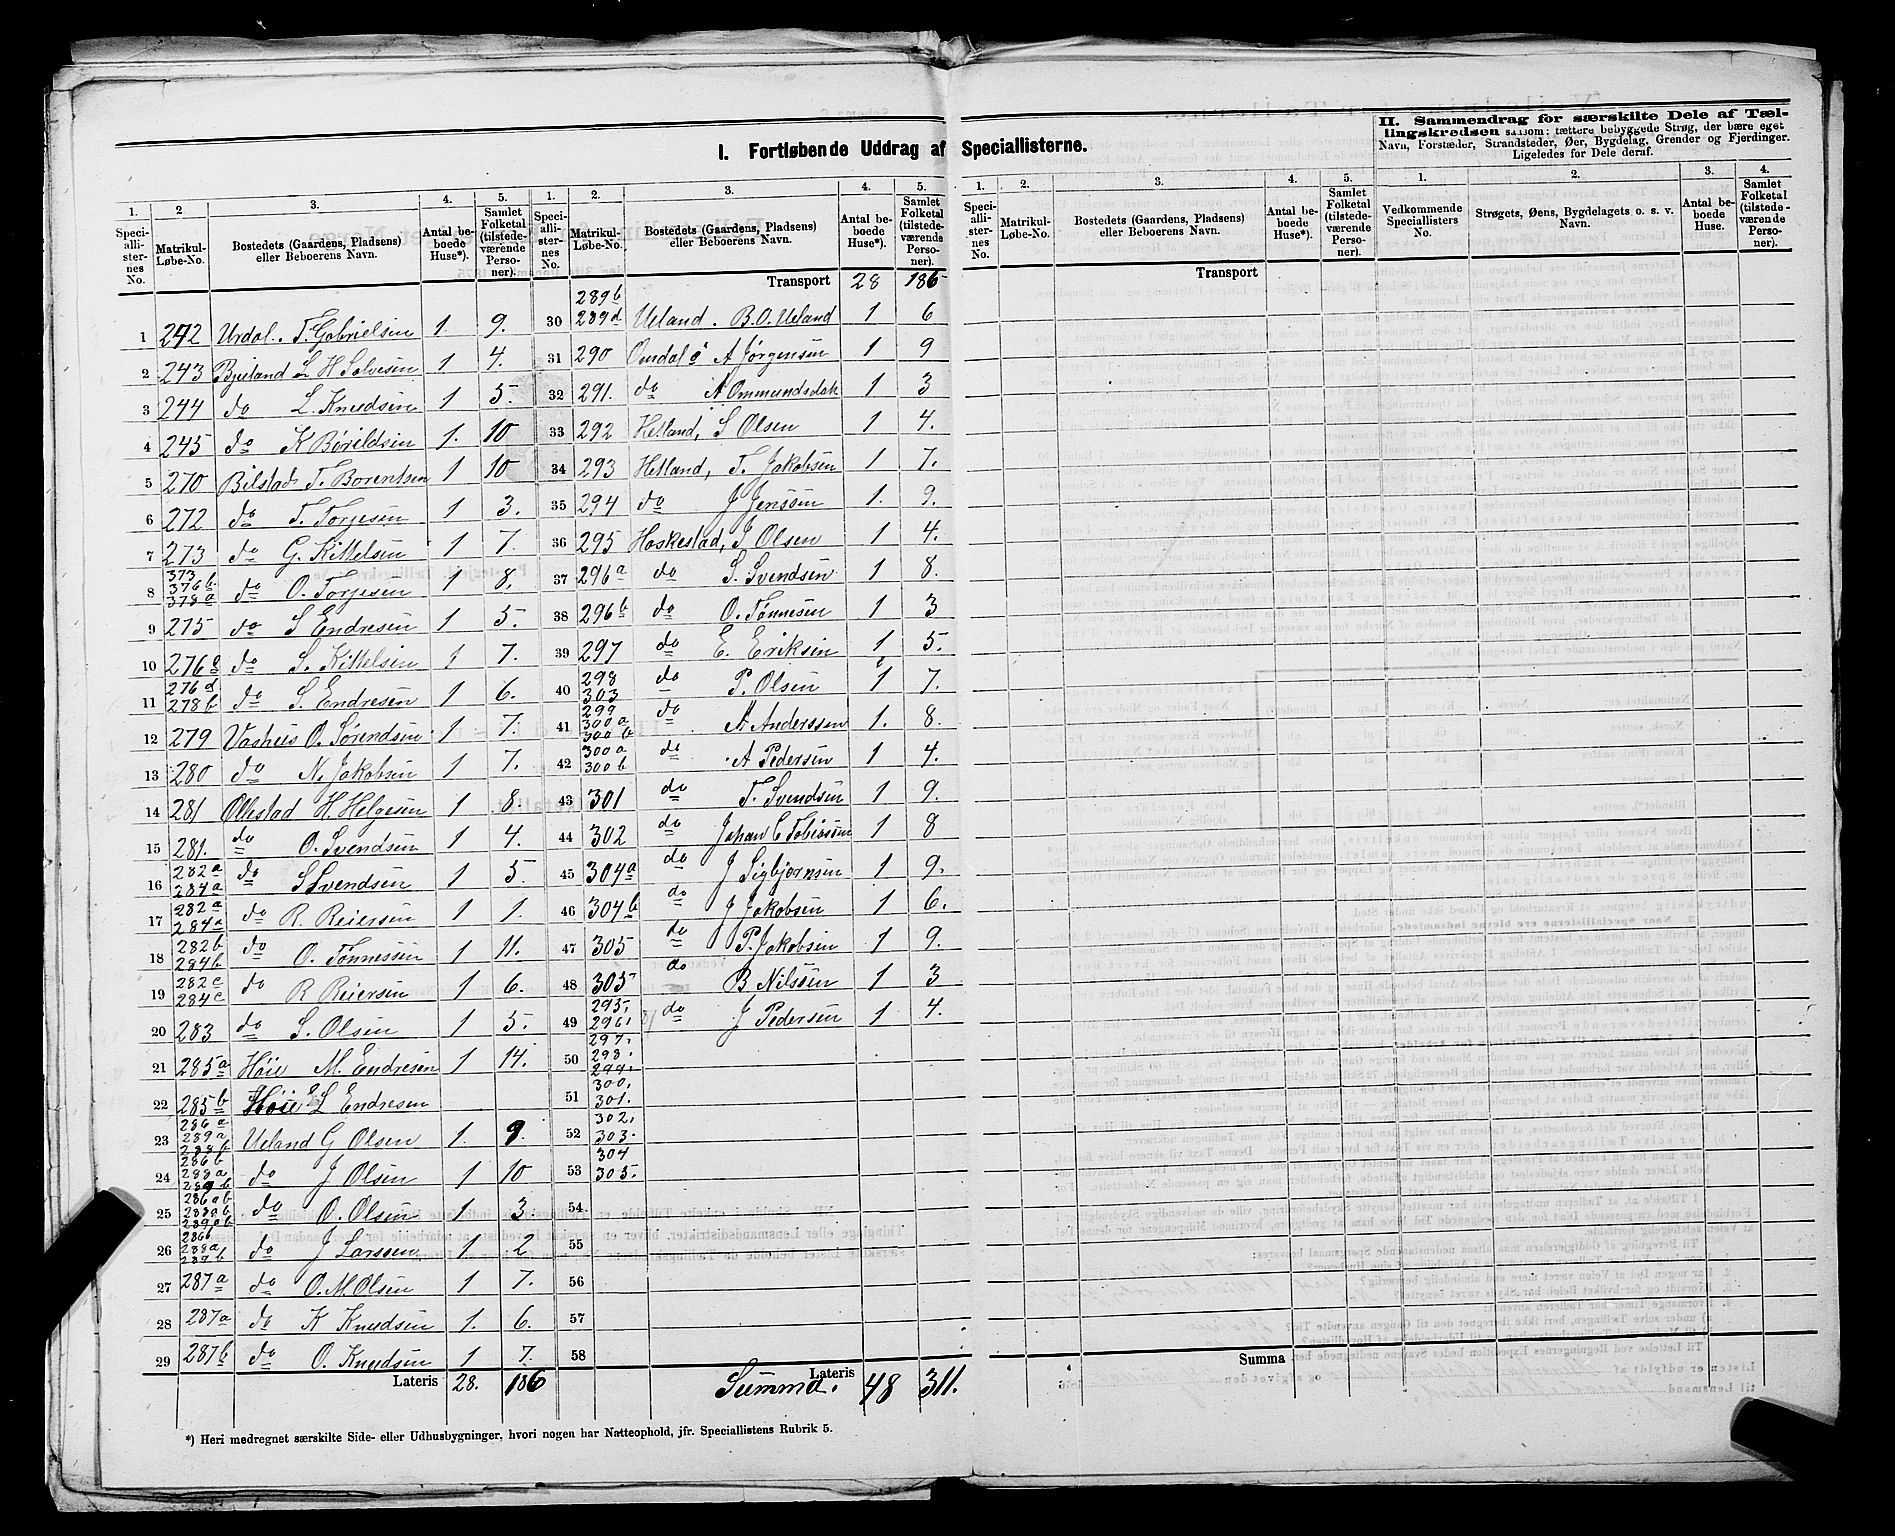 I. Fortløbende Uddrag af Speciallisterne.
II. Sammendrag for særskilte Dele af Tæl-
lingskredsen saasom: tættere bebyggede Strøg, der bære eget
Navn, Forstæder, Strandsteder, Øer, Bygdelag, Grender og Fjerdinger.
Ligeledes for Dele deraf.
1. Speci-alli-ster-nes No. 2 Matrikul-Løbe-No. 3. Bostedets (Gaardens, Pladsens) eller Beboerens Navn. 4. Antal be-boede Huse*). 5. Samlet Folketal (tilstede-værende Perso-ner).
1 242 Urdal. T. Gabrielsen 1. 9.
2 243 Bjelland L H Salvesen 1 4.
3 244 do L. Knudsen 1 5.
4 245 do K Børildsen 1. 10
5 270 Bilstad T. Borentsen 1 10
6 272 do T. Torjesen 1 3.
7 273 do G. Kittelsen 1 7.
8 373 376b 378a do O. Torjesen 1 8.
9 275 do S Endresen 1 5.
10 276c do S. Kittelsen 1 7.
11 276d 278b do S. Endresen 1 6.
12 279 Vashus O. Sørendsen 1 7.
13 280 do N. Jakobsen 1 7.
14 281 Ollestad H. Helgesen 1 8.
15 281. do O. Svendsen 1 4.
16 282a 284a do S Svendsen 1 5.
17 282a 284a do R. Reiersen 1 1.
18 282b 284b do O. Tønnessen 1 11.
19 282c 284c do R Reiersen 1 6.
20 283 do S. Olsen 1 5.
21 285a Høie M. Endresen 1 14.
22 285b Høie L Endresen
23 286a 289a 288b Ueland G Olsen 1. 9.
24 286b 288a 289b do J Olsen 1 10
25 286ab 288ab 289ab do O. Olsen 1 3.
26 286b 288a 289b do J Larssen 1 2
27 287a do O. M. Olsen 1 7.
28 287a do K Knudsen 1. 6.
29 287b do O. Knudsen 1 7.
Lateris 28. 186
1. Speci-alli-ster-nes No. 2. Matrikul-Løbe-No. 3. Bostedets (Gaardens, Pladsens) eller Beboerens Navn. 4. Antal be-boede Huse*). 5. Samlet Folketal (tilstede-værende Perso-ner).
Transport 28 186
30 289b 289d Ueland. B. O. Ueland 1 6
31 290 Omdal A Jørgensen 1 9
32 291. do A Ommundsdat 1 3
33 292 Hetland, S Olsen 1 4.
34 293 Hetland, T. Jakobsen 1 7.
35 294 do J Jenssen 1. 9.
36 295 Haskestad, J Olsen 1 4.
37 296a do S. Svendsen 1 8.
38 296b do O. Tønnesen 1 3
39 297 do E. Eriksen 1 5.
40 298 303 do P. Olsen 1 7.
41 299 300a 300b do A Anderssen 1. 8.
42 300a 300b do A Pedersen 1 4.
43 301 do T. Svendsen 1 9.
44 302 do Johan C Tobiassen 1 8
45 304a do J Sigbjørnsen 1 9.
46 304b do J Jakobsen 1 6.
47 305 do P. Jakobsen 1 9.
48 305 do B Nilssen 1 3
49 295. 296. do J Pedersen 1 4.
50 297. 298. 294.
51 300. 301.
52 302. 303.
53 304 305.
54
55
56
57
58
Lateris Summa. 48 311.
1. Speci-alli-ster-nes No. 2. Matrikul-Løbe-No. 3. Bostedets (Gaardens, Pladsens) eller Beboerens Navn. 4. Antal be-boede Huse*). 5. Samlet Folketal (tilstede-værende Perso-ner).
Transport
Summa
1. Vedkommende Speciallisters No. 2. Strøgets, Øens, Bygdelagets o. s. v. Navn. 3. Antal be-boede Huse. 4. Samlet Folketal (tilstede-værende Perso-ner).
*) Heri medregnet særskilte Side- eller Udhusbygninger, hvori nogen har Natteophold, jfr. Speciallistens Rubrik 5.